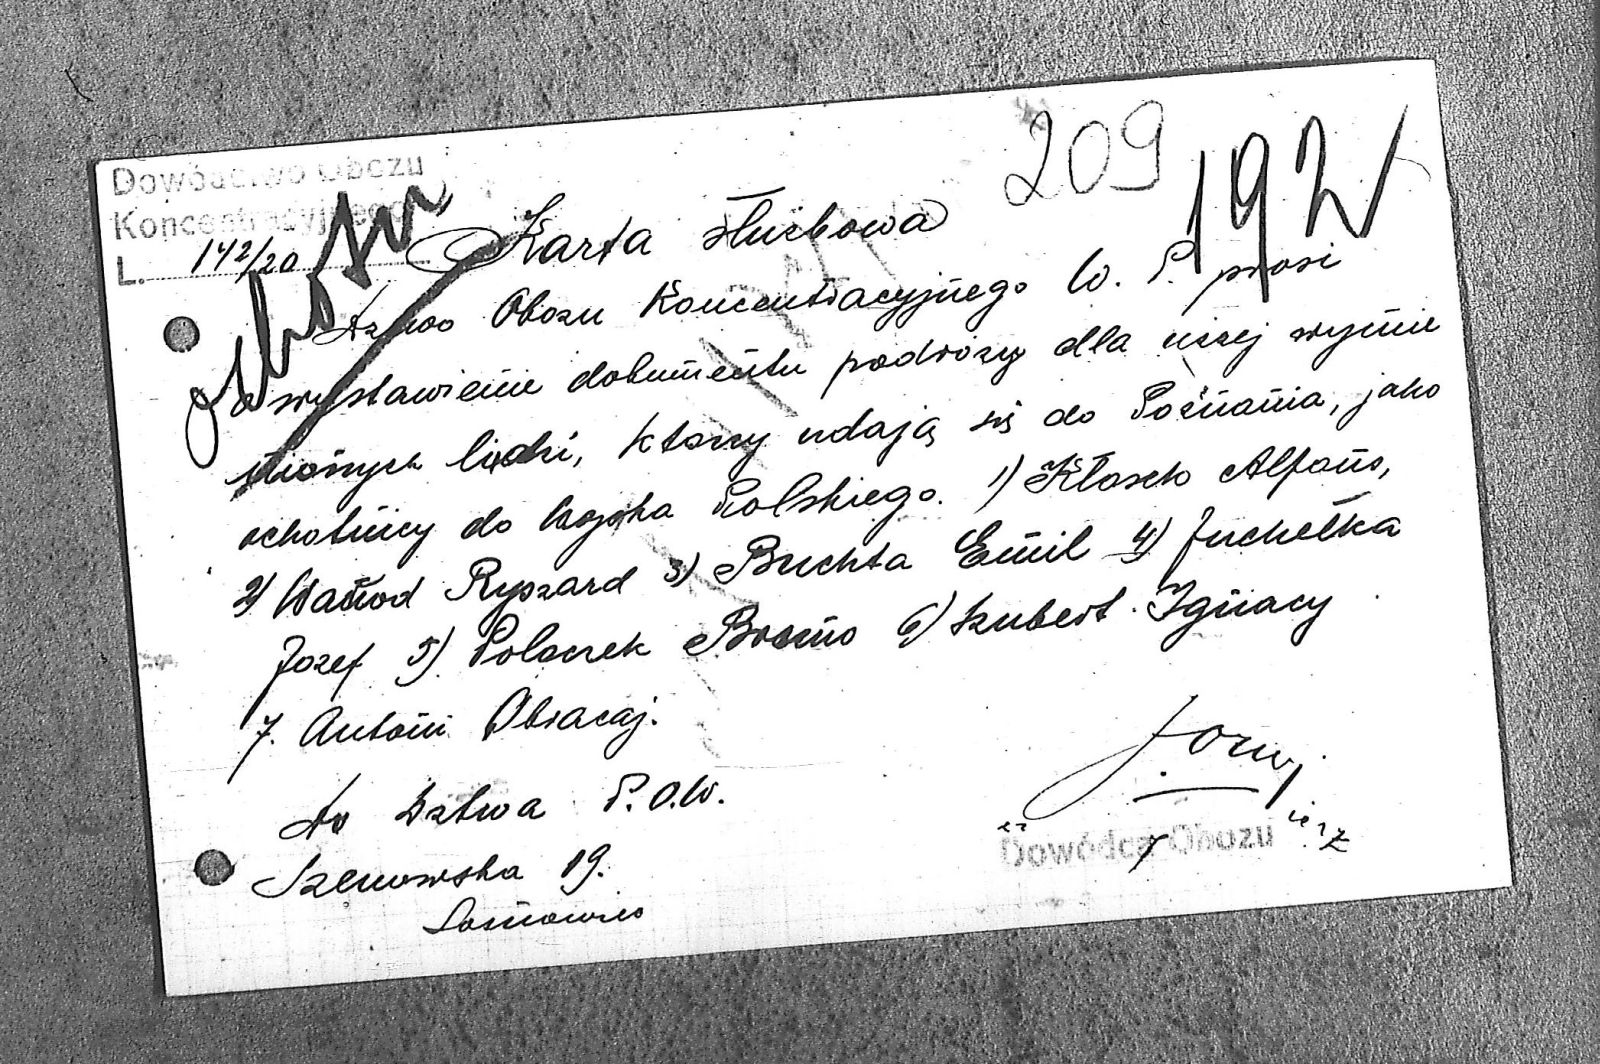 209 192
Dowództwo Obozu
Koncentracyjnego
L. 142/20
Karta służbowa
Dztwo Obozu Koncentracyjnego W. P. prosi
o wystawienie dokumentu podróży dla niżej wymie
nionych ludzi, ktorzy udają się do Poznania, jako
ochotnicy do Wojska Polskiego. 1) Kłosek Alfons,
2) Ryszard 3) Buchta Emil 4) Juchelka
Jozef 5) Polaczek Bruno 6) Szubert Ignacy
7. Antoni Obracaj.
Do Dztwa P.O.W.
19.
Sosnowiec
Dowódca Obozu